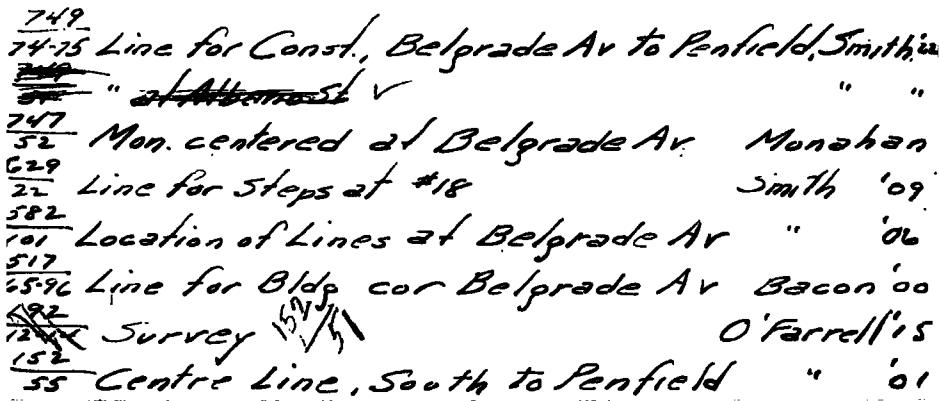 749
74-75 Line for Const., Belgrade Av to Penfield, Smith '22
" at Albano St ✓ " "
747
52 Mon. centered at Belgrade Av Monahan
629
22 Line for Steps at #18 Smith '09
582
101 Location of Lines at Belgrade Av " '06
517
65-96 Line for Bldg cor Belgrade Av Bacon '00
Survey 152/51 O'Farrell '15
152
55 Centre Line, South to Penfield " '01